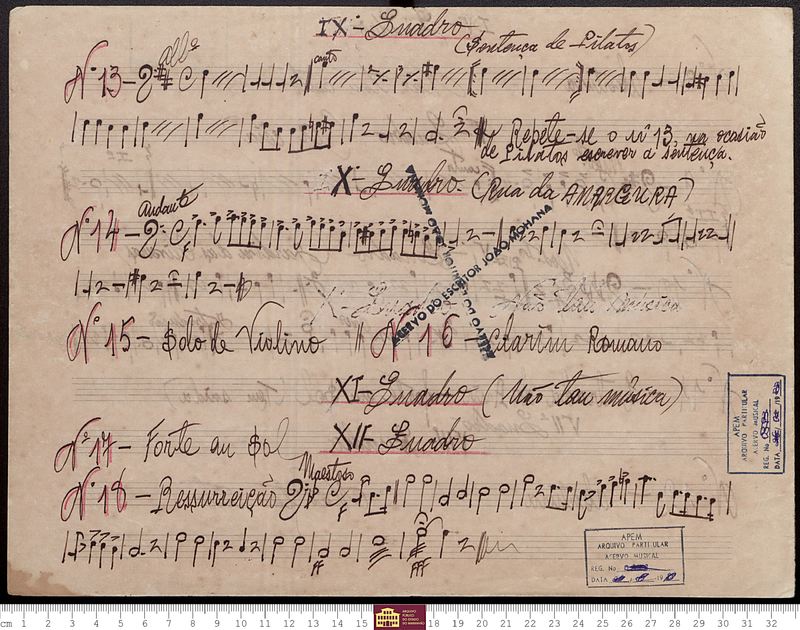 IX- Quadro
(Sentença de Pilatos)
allº
Nº 13-
canto
Repete-se o nº 13, na ocasião
de Pilatos escrever a sentença.
X- Quadro- (Rua da AMARGURA)
Andante
Nº 14-
F
ACERVO DO ESCRITOR JOÃO MOHANA
Nº 15- Solo de Violino // Nº 16- Clarim Romano
XI- Quadro (Não tem música)
Nº 17- Forte au Sol
XII- Quadro
Maestoso
Nº 18- Ressurreição
F
FF
FFF
APEM
ARQUIVO PARTITULAR
ACERVO MUSICAL
REG. No
DATA
APEM
ARQUIVO PARTITULAR
ACERVO MUSICAL
REG. No
DATA
cm 1 2 3 4 5 6 7 8 9 10 11 12 13 14 15 18 19 20 21 22 23 24 25 26 27 28 29 30 31 32